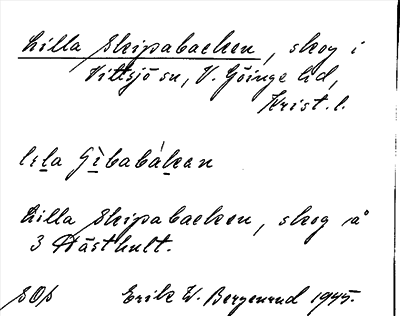 Lilla Skipabacken, skog i
Vittsjö sn, V. Göinge hd,
Krist. l.
lila Gibabákan
Lilla Skipabacken, skog å
3 Hästhult.
SOs Erik W. Bergenrud 1945.